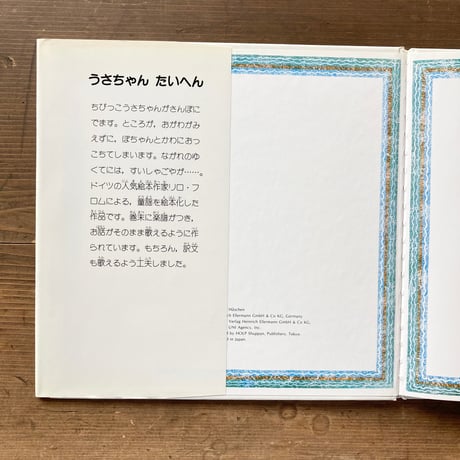 うさちゃん たいへん
ちびっこうさちゃんがさんぽに
でます。ところが、おがわがみ
えずに、ぽちゃんとかわにおっ
こちてしまいます。ながれのゆ
くてには、すいしゃごやが……。
ドイツの人気絵本作家リロ・フ
ロムによる、童謡を絵本化した
作品です。巻末に楽譜がつき、
お話がそのまま歌えるように作
られています。もちろん、訳文
も歌えるよう工夫しました。
München
rich Ellermann GmbH & Co KG, Germany
Verlag Heinrich Ellermann GmbH & Co KG,
UNI Agency, Inc.
by HOLP Shuppan, Publishers, Tokyo
in Japan.